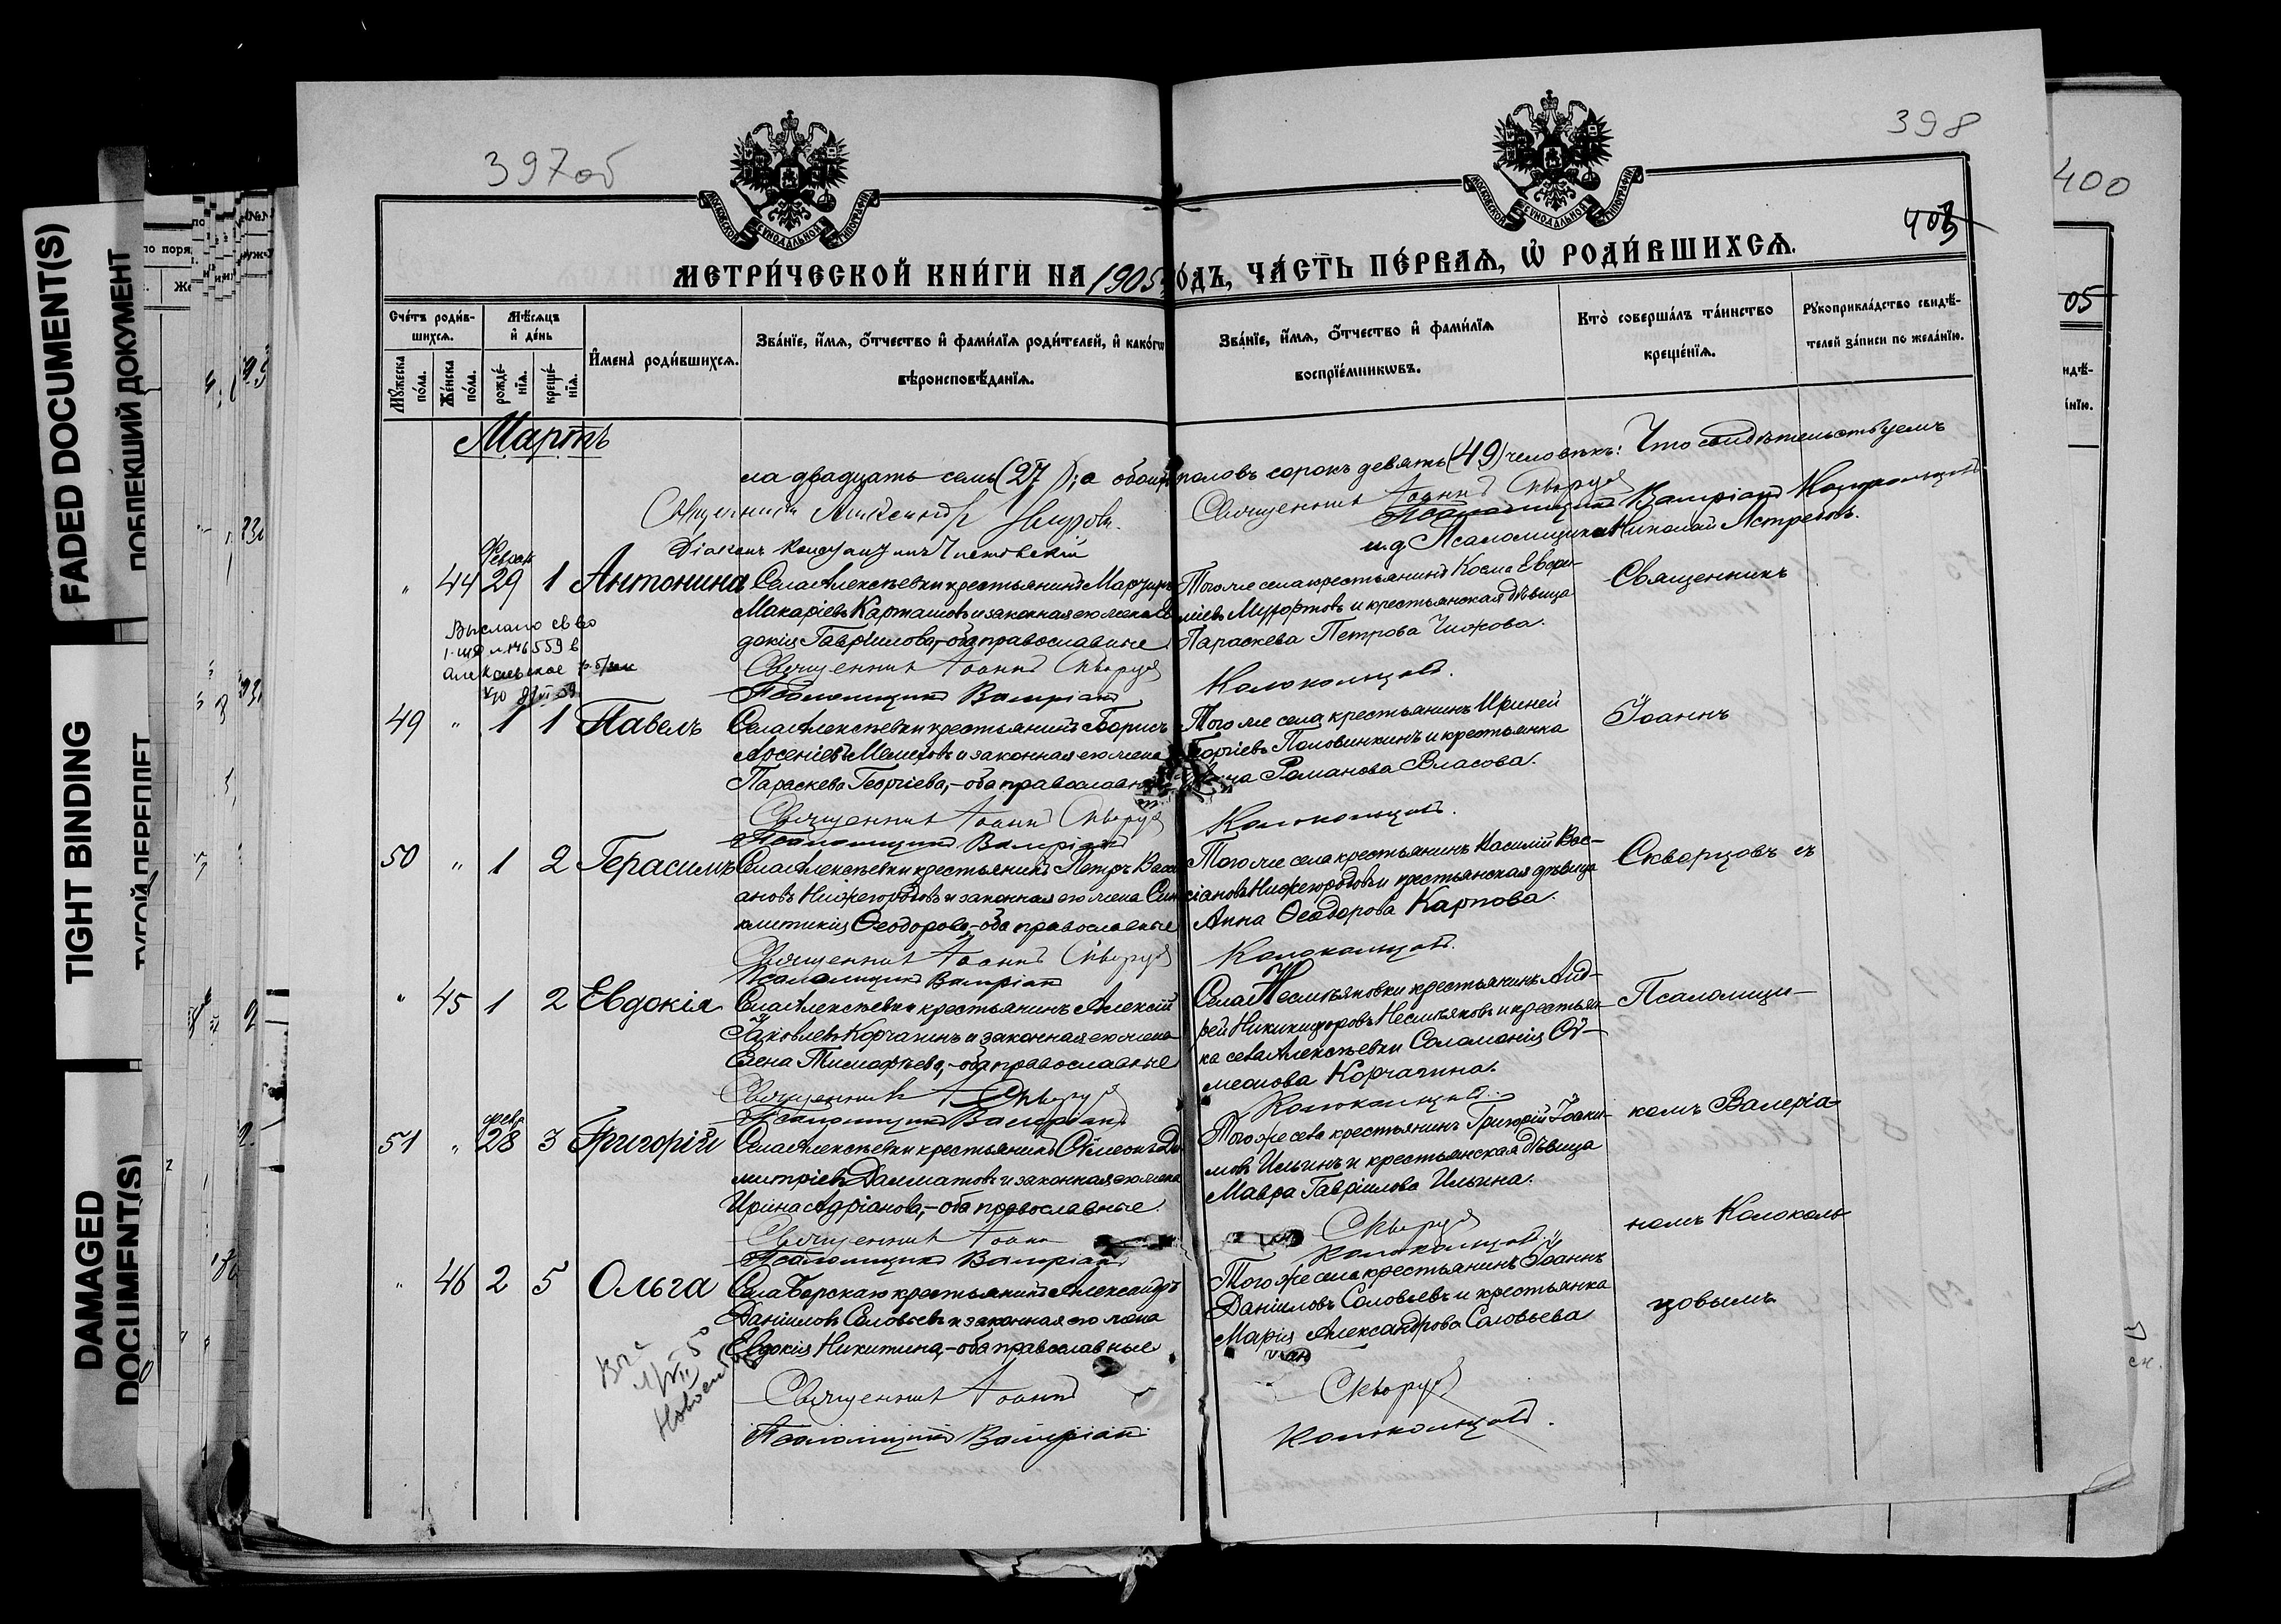 FADED DOCUMENT(S)
ПОБЛЕКШИЙ ДОКУМЕНТ
TIGHT BINDING
ТУГОЙ ПЕРЕПЛЕТ
DAMAGED DOCUMENT(S)
397об
398
400
403
05
МОСКОВСКОЙ СѴНОДАЛЬНОЙ ТИПОГРАФІИ
МОСКОВСКОЙ СѴНОДАЛЬНОЙ ТИПОГРАФІИ
МЕТРИ́ЧЕСКОЙ КНИ́ГИ НА 1905 ГО́ДЪ, ЧА́СТЬ ПЕ́РВАѦ, Ѡ҆ РОДИ́ВШИХСѦ.
Сче́тъ роди́в-
шихсѧ.
Мꙋ́жеска по́ла.
Же́нска по́ла.
Мѣ́сѧцъ
и҆ де́нь
рожде́-
нїѧ.
креще́-
нїѧ.
И҆мена̀ роди́вшихсѧ.
Зва́нїе, и҆́мѧ, ѻ҆́тчество и҆ фами́лїѧ роди́телей, и҆ како́гѡ
вѣроисповѣ́данїѧ.
Зва́нїе, и҆́мѧ, ѻ҆́тчество и҆ фами́лїѧ
воспрїе́мникѡвъ.
Кто̀ соверша́лъ та́инство
креще́нїѧ.
Рꙋкоприкла́дство свидѣ́-
телей за́писи по жела́нїю.
Мартъ
ла двадцать семь (27); а обоихъ половъ сорокъ девять (49) человѣкъ: Что свидѣтельствуемъ
Священникъ Александръ
Священникъ Іоаннъ Скворцов
Псаломщикъ Валеріанъ Колокольцовъ
Діаконъ
и.д. Псаломщика Николай Ястребовъ.
" 44 Февраль 29 1 Антонина
Села Алексѣевки крестьянинъ
Макаріевъ Карташовъ и законная его жена Ев
докія Гавриилова, – оба православные
Того же села крестьянинъ Косма Евфи-
міевъ и крестьянская дѣвица
Параскева Петрова Чижова.
Священникъ
Выслано св во
Священникъ Іоаннъ Скворцов
Псаломщикъ Валеріанъ Колокольцовъ.
49 " 1 1 Павелъ
Села Алексѣевки крестьянинъ Борисъ
Арсеніевъ и законная его жена
Параскева Георгіева, – оба православные
Того же села крестьянинъ Ириней
Георгіевъ Половинкинъ и крестьянка
Романова Власова.
Іоаннъ
Священникъ Іоаннъ Скворцов
Псаломщикъ Валеріанъ Колокольцовъ.
50 " 1 2 Герасимъ
Села Алексѣевки крестьянинъ Петръ Васси
ановъ Нижегородовъ и законная его жена Син
клитикія Ѳеодорова, – оба православные
Того же села крестьянинъ Василій Вас-
сіановъ Нижегородовъ и крестьянская дѣвица
Анна Ѳеодорова Карпова.
Скворцовъ съ
Священникъ Іоаннъ Скворцов
Псаломщикъ Валеріанъ Колокольцовъ.
" 45 1 2 Евдокія
Села Алексѣевки крестьянинъ Алексій
Іаковлевъ Корчагинъ и законная его жена
Елена Тимофѣева, – оба православные
Села Несмѣяновки крестьянинъ Анд-
рей Никикифоровъ Несмѣяновъ и крестьян-
ка села Алексѣевки Соломонія Сѵ-
меонова Корчагина.
Псаломщи-
Священникъ І Скворцов
Псаломщикъ Валеріанъ Колокольцовъ.
51 " февр. 28 3 Григорій
Села Алексѣевки крестьянинъ Сѵмеонъ Ди
митріевъ Далматовъ и законная его жена
Ирина Адріанова, – оба православные
Того же села крестьянинъ Григорій Іоаки-
мовъ Ильинъ и крестьянская дѣвица
Мавра Гавріилова Ильина.
комъ Валеріа
Священникъ Іоаннъ Скворцов
Псаломщикъ Валеріанъ Колокольцовъ.
номъ Колоколь
" 46 2 5 Ольга
Села Борскаго крестьянинъ Александръ
Даніиловъ Соловьевъ и законная его жена
Евдокія Никитина, – оба православные
Того же села крестьянинъ Іоаннъ
Даніиловъ Соловьевъ и крестьянка
Марія Александрова Соловьева
цовымъ
Священникъ Іоаннъ Скворцов
Псаломщикъ Валеріанъ Колокольцовъ.